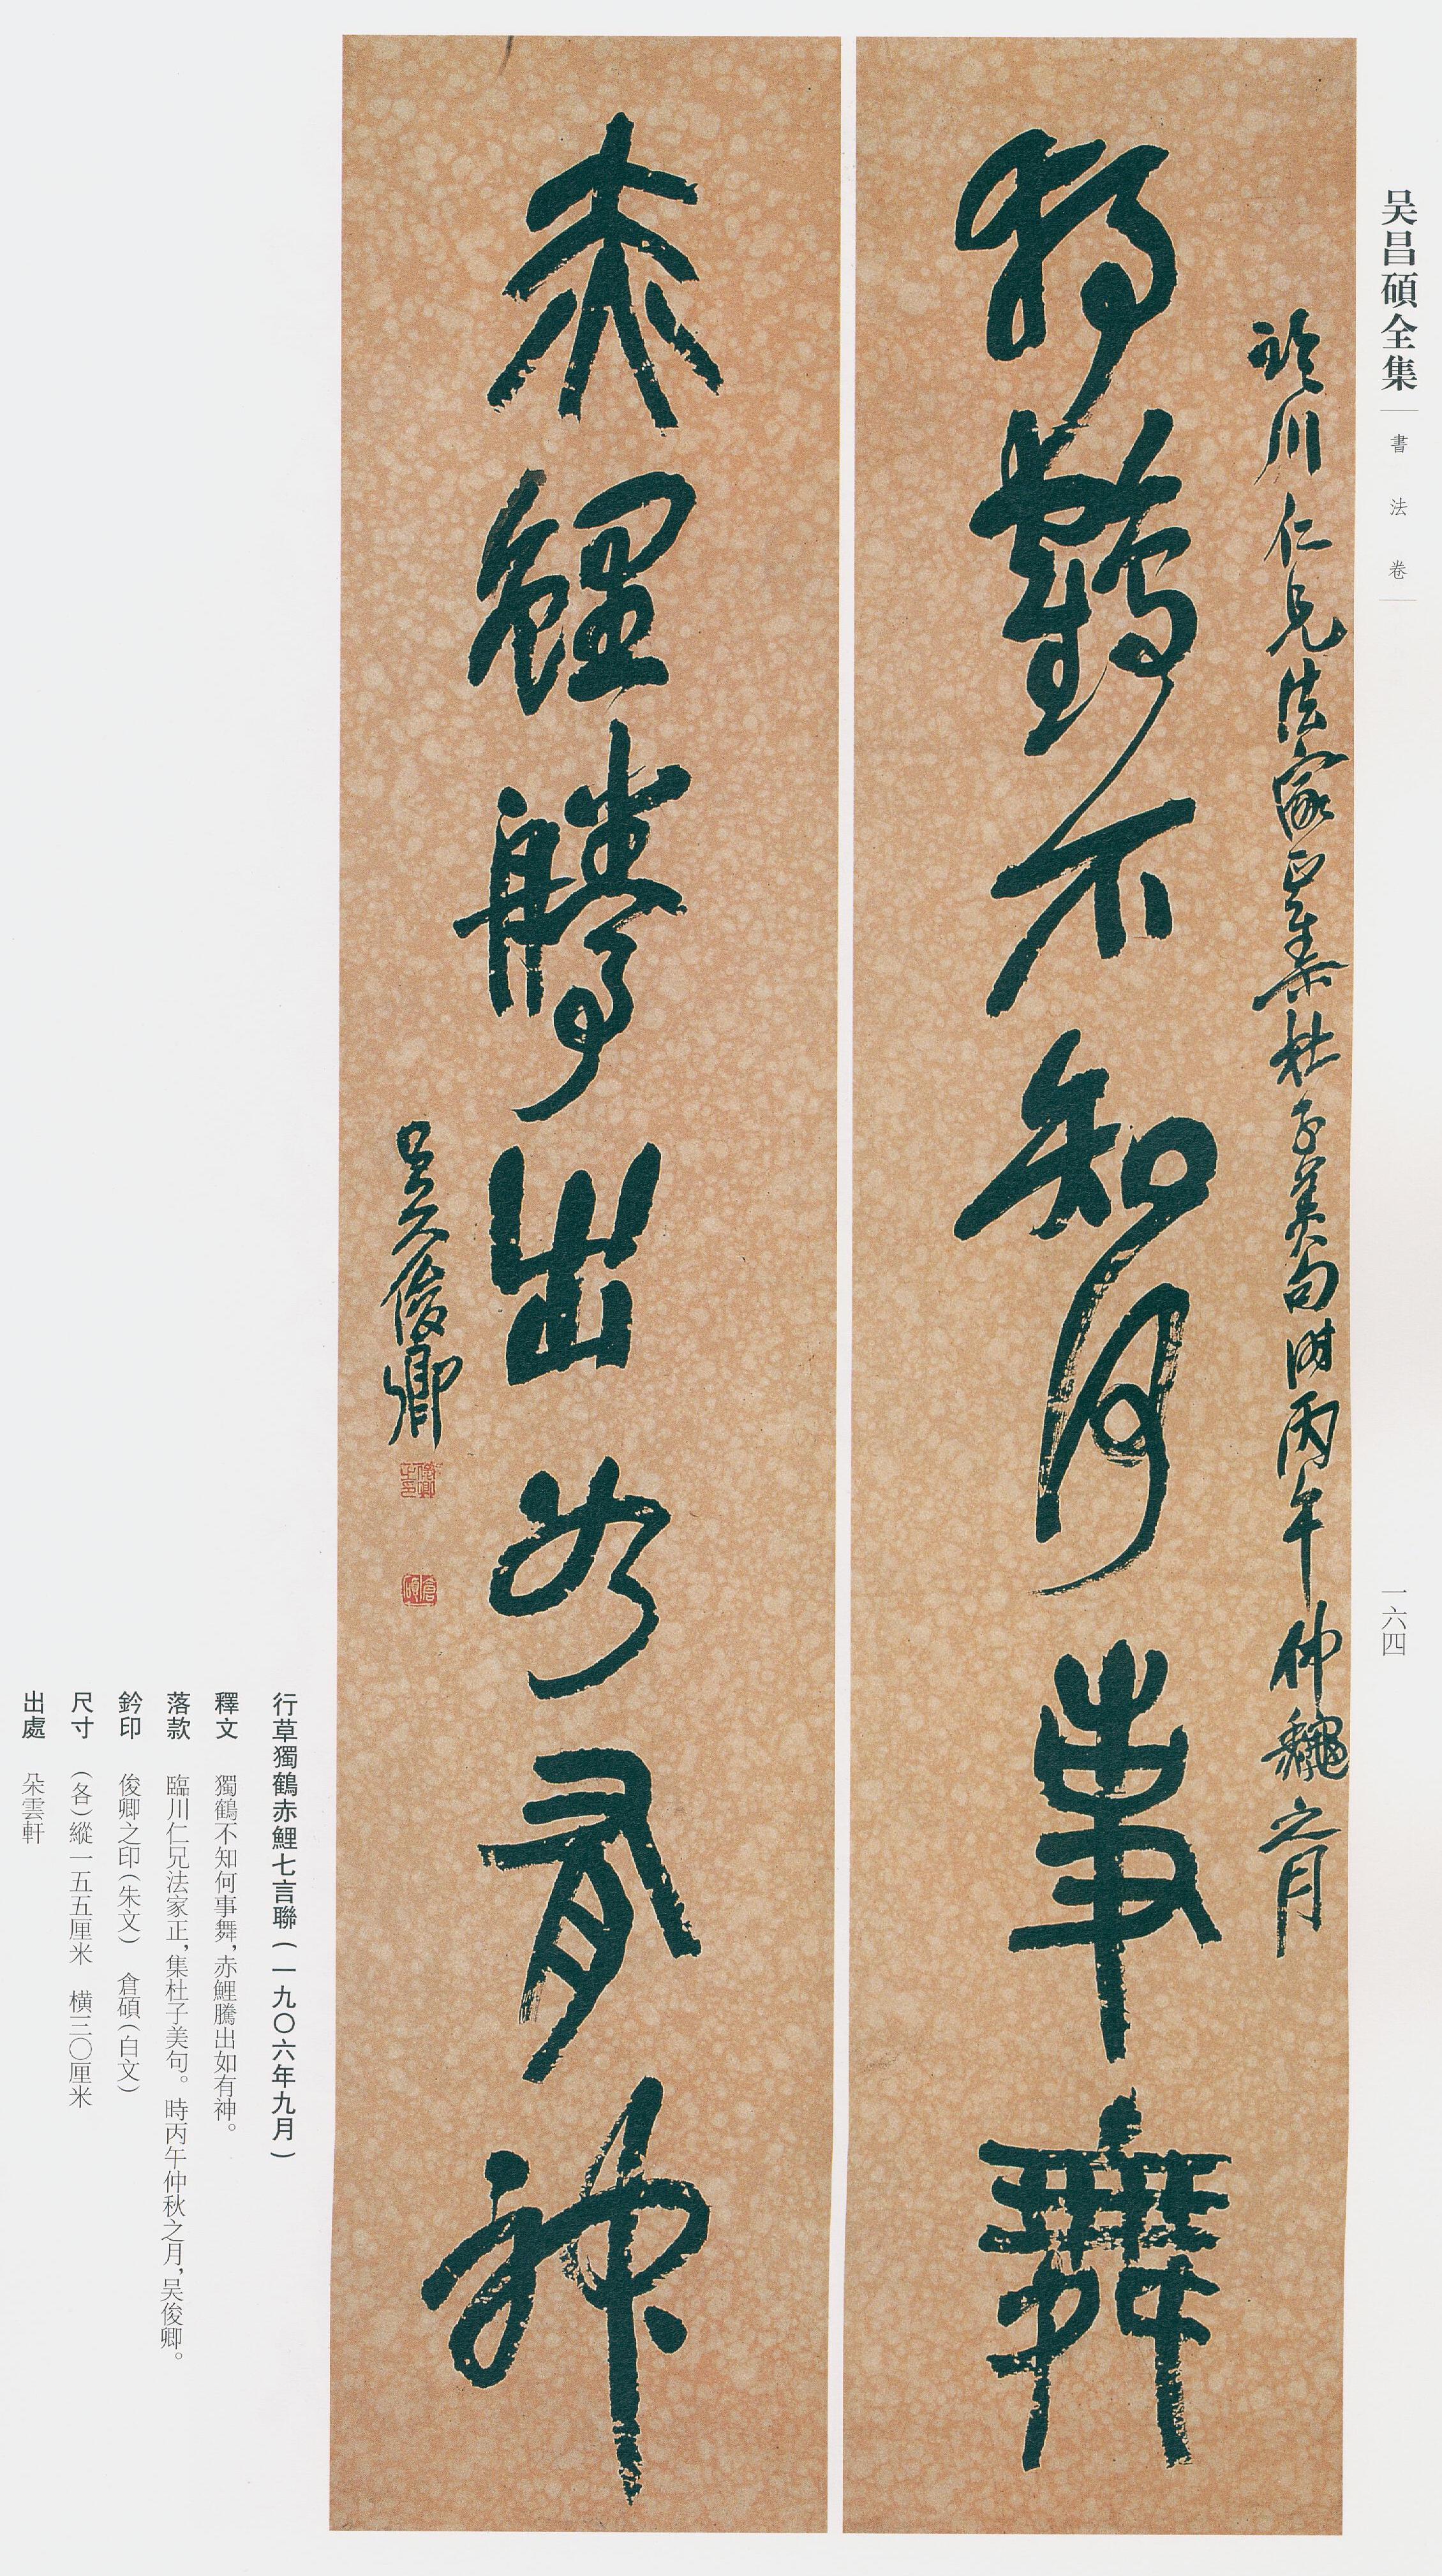 吴昌碩全集
書法卷
一六四
臨川仁兄法家正集杜子美句時丙午仲龝之月
獨鶴不知何事舞
赤鯉騰出如有神
吴俊卿
俊卿之印
倉碩
行草獨鶴赤鯉七言聯(一九〇六年九月)
釋文 獨鶴不知何事舞,赤鯉騰出如有神。
落款 臨川仁兄法家正,集杜子美句。時丙午仲秋之月,吴俊卿。
鈐印 俊卿之印(朱文) 倉碩(白文)
尺寸 (各)縱一五五厘米 橫三〇厘米
出處 朵雲軒